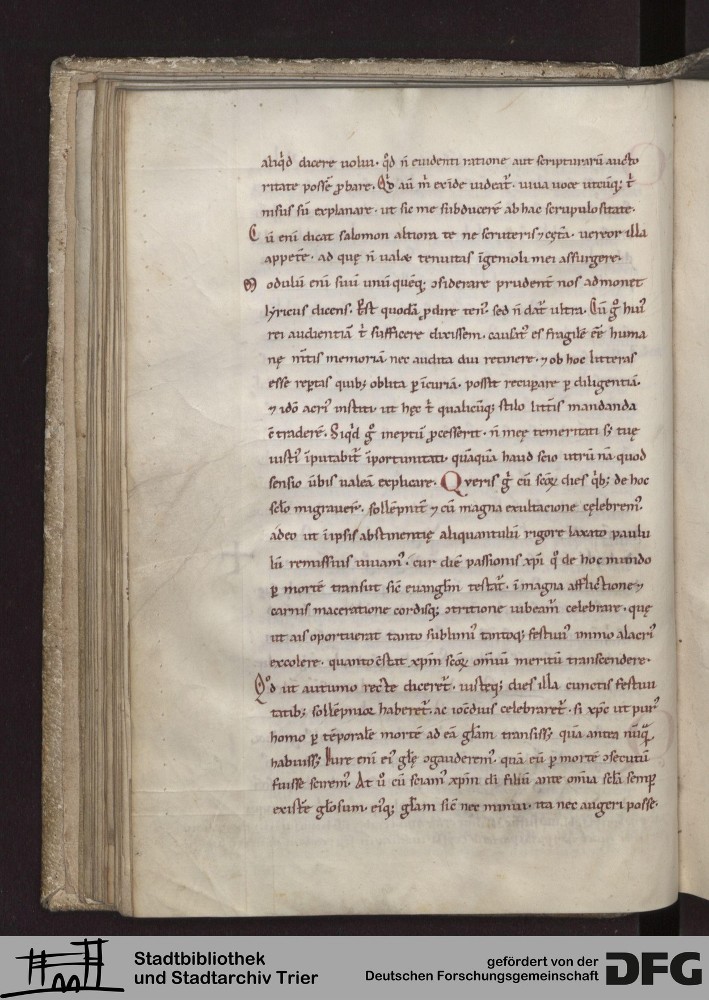 aliq̇d dicere uolui. qd̄ n̄ euidenti ratione aut scripturarū aucto
ritate possē ꝓbare. Qd̄ aū m̄ exīde uideat᷑. uiua uoce utcūq; t̄
nisus sū explanare. ut sic me subducerē ab hac scrupulositate.
Cū eni dicat salomon altiora te ne scruteris ⁊ cęt̄a. uereor illa
appetē. ad quę n̄ ualæ tenuitas īgenioli mei assurgere.
Modulū eni suū unū quēq; ꝯsiderare prudent̄ nos admonet
lyricus dicens. Est quodā ꝓdire ten᷒. sed n̄ dat᷑ ultra. Cū gͦ hui᷒
rei audientiā t̄ sufficere dixissem. causat᷒ es fragilē eē huma
nę m̄tis memoriā. nec audita diu retinere. ⁊ ob hoc litteras
esse rep̄tas quib; oblita ꝑ īcuriā. possit recuꝑare ꝑ diligentiā.
⁊ idō acri᷒ institi. ut hęc t̄ qualicūq; stilo litt̄is mandanda
ē traderē. Siq̇d gͦ ineptū ꝓcesserit. n̄ meę temeritati s; tuę
iusti᷒ īputabit᷑ īportunitati. quāquā haud scio utrū na quod
sensio ūbis ualeā explicare. Queris gͦ cū scōꝝ dies qͥb; de hoc
sclō migrauer̄. sollēpnit̄ ⁊ cū magna exultacione cęlebrem᷒.
adeo ut ī ipsis abstinentię aliquantulū rigore laxato paulu
lū remissius uiuam᷒. cur diē passionis xp̄i qͦ de hoc mundo
ꝑ mortē transiit sic̄ euanglm̄ testat᷑. ī magna afflictione ⁊
carnis maceratione cordisq; ꝯtritione iubeam᷑ celebrare. quę
ut ais oportuerat tanto sublimi᷒ tantoq; festiui᷒ immo alacri᷒
excolere. quanto ꝯstat xp̄m scōꝝ omniū meritū transcendere.
Qd̄ ut autumo recte diceret᷑. iusteq; dies illa cunctis festiui
tatib; sollēpnior haberet᷑. ac iocūdius celebraret᷑. si xp̄c ut pur᷒
homo ꝑ tēporalē mortē ad eā gl̄am transiss; quā antea nūq̄
habuiss; Iure eni ei᷒ glę ꝯgauderem᷒. quā eū ꝑ mortē ꝯsecutū
fuisse scirem᷒. At ū cū sciam᷒ xp̄m dī filiū ante omīa sclā semꝑ
existe᷑ glōsum. ei᷒q; gl̄am sic̄ nec minui. ita nec augeri posse.
Stadtbibliothek
und Stadtarchiv Trier
gefördert von der
Deutschen Forschungsgemeinschaft
DFG